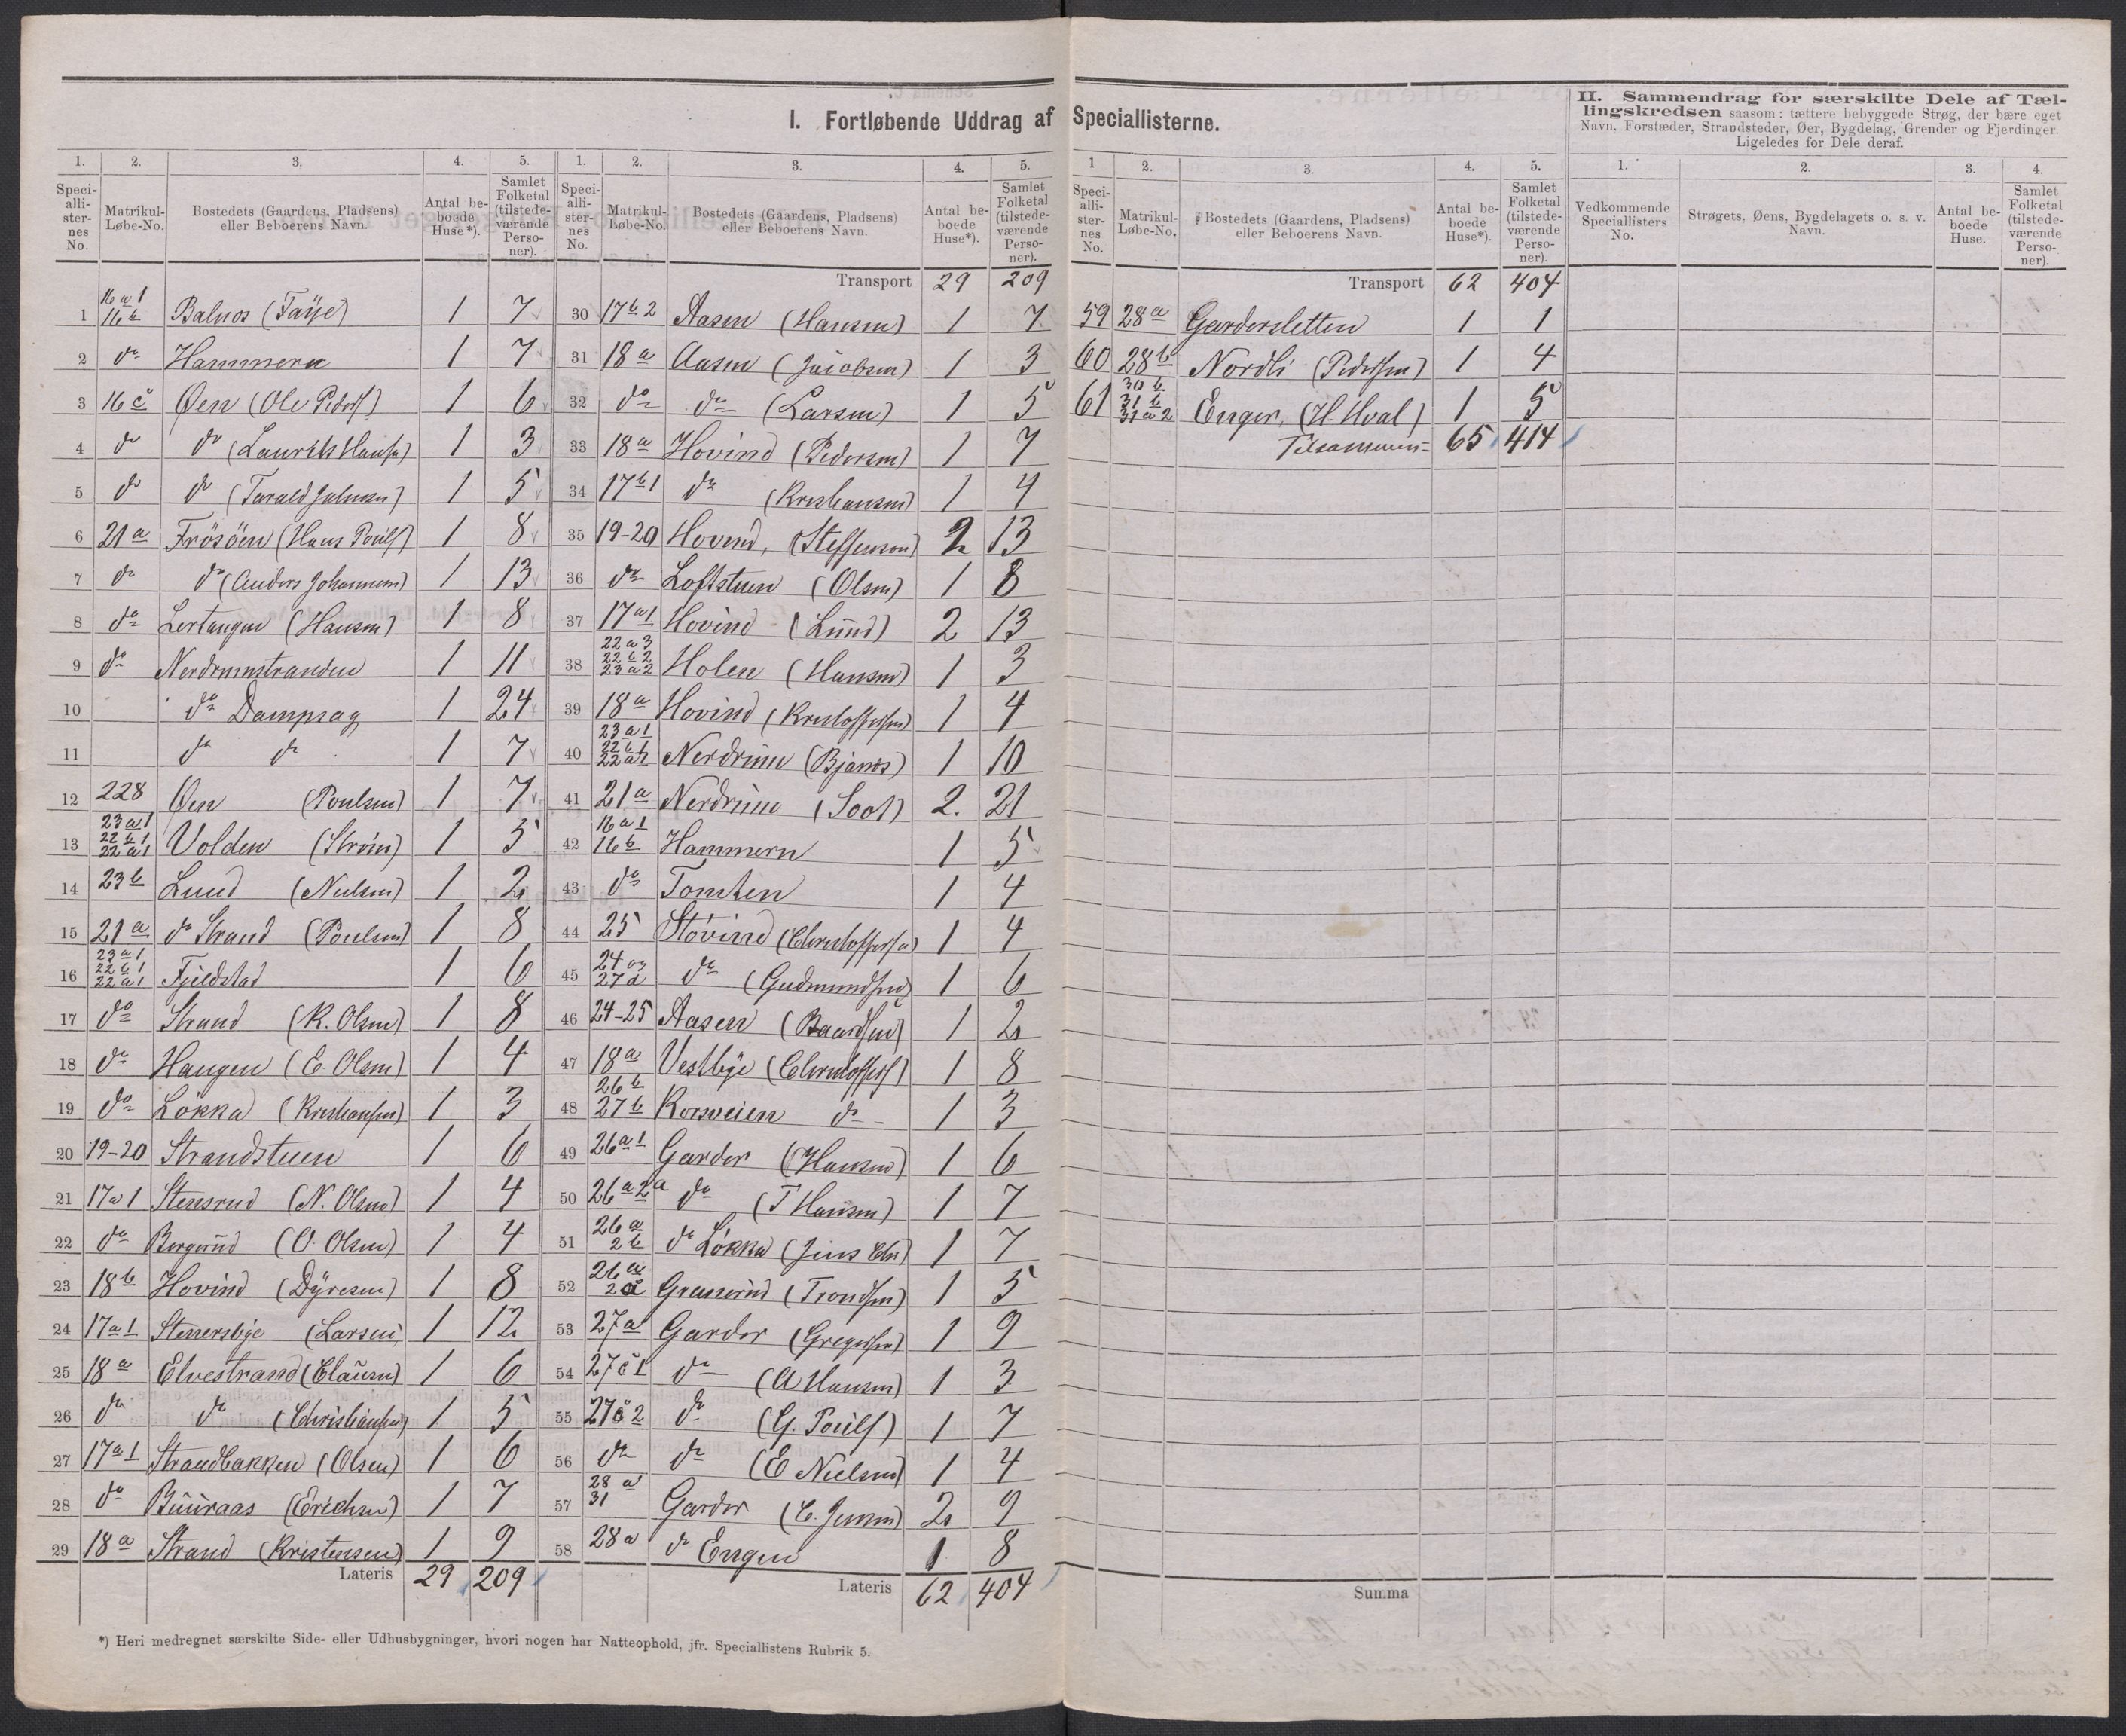 I. Fortløbende Uddrag af Speciallisterne.
1. 2. 3. 4. 5.
Speciallisternes No. Matrikul-Løbe-No. Bostedets (Gaardens, Pladsens) eller Beboerens Navn. Antal beboede Huse*). Samlet Folketal (tilstedeværende Personer).
1 16 a 1 16 b Balnos (Faÿe) 1 7
2 do Hammeren 1 7
3 16 c Øen (Ole Peders) 1 6
4 do do (Laurits Hansen) 1 3
5 do do (Tarald Johnsen) 1 5
6 21 a Frösöen (Hans Poüls) 1 8
7 do do (Anders Johannesen) 1 13
8 do Lertangen (Hansen) 1 8
9 do Nerdrumstranden 1 11
10 do Dampsag 1 24
11 do do 1 7
12 228 Øen (Poulsen) 1 7
13 23 a 1 22 b 1 22 a 1 Volden (Ström) 1 5
14 23 b Lund (Nielsen) 1 2
15 21 a do Strand (Poulsen) 1 8
16 23 a 1 22 b 1 22 a 1 Fjeldstad 1 6
17 do Strand (K. Olsen) 1 8
18 do Haugen (E. Olsen) 1 4
19 do Lökka (Kristiansen) 1 3
20 19-20 Strandstuen 1 6
21 17 a 1 Stensrud (N. Olsen) 1 4
22 do Bergerüd (O. Olsen) 1 4
23 18 b Hovind (Dÿresen) 1 8
24 17 a 1 Stenersbye (Larsen) 1 12
25 18 a Elvestrand (Claüsen) 1 6
26 do do (Christiansen) 1 5
27 17 a 1 Strandbakken (Olsen) 1 6
28 do Büüraas (Erichsen) 1 7
29 18 a Strand (Kristensen) 1 9
Lateris 29 209
1. 2. 3. 4. 5.
Speciallisternes No. Matrikul-Løbe-No. Bostedets (Gaardens, Pladsens) eller Beboerens Navn. Antal beboede Huse*). Samlet Folketal (tilstedeværende Personer).
Transport 29 209
30 17 b 2 Aasen (Hansen) 1 7
31 18 a Aasen (Jacobsen) 1 3
32 do do (Larsen) 1 5
33 18 a Hovind (Pedersen) 1 7
34 17 b 1 do (Kristiansen) 1 4
35 19-20 Hovind, (Steffensen) 2 13
36 do Loftstuen (Olsen) 1 8
37 17 a 1 Hovind (Lünd) 2 13
38 22 a 3 22 b 2 23 a 2 Holen (Hansen) 1 3
39 18 a Hovind (Kristoffersen) 1 4
40 23 a 1 22 b 1 22 a 1 Nerdrüm (Bjanes) 1 10
41 21 a Nerdrüm (Soot) 2. 21
42 16 a 1 16 b Hammern 1 5
43 do Tomten 1 4
44 25 Stövind (Christoffersen) 1 4
45 24 og 27 a do (Gudmundsen) 1 6
46 24-25 Aasen (Baardsen) 1 2
47 18 a Vestbye (Christoffers) 1 8
48 26 b 27 b Korsveien do 1 3
49 26 a 1 Garder (Hansen) 1 6
50 26 a 2 a do (T Hansen) 1 7
51 26 a 2 b do Løkka (Jens Chr) 1 7
52 26 a 2 c Granerüd (Trondsen) 1 5
53 27 a Garder (Gregersen) 1 9
54 27 c 1 do (A Hansen) 1 3
55 27 c 2 do (G. Poüls) 1 7
56 do do (E Nielsen) 1 4
57 28 a 31 Garder (C. Jensen) 2 9
58 28 a do Engen 1 8
Lateris 62 404
1 2. 3. 4. 5.
Speciallisternes No. Matrikul-Løbe-No. Bostedets (Gaardens, Pladsens) eller Beboerens Navn. Antal beboede Huse*). Samlet Folketal (tilstedeværende Personer).
Transport 62 404
59 28 a Gardersletten 1 1
60 28 b Nordli (Pedersen) 1 4
61 30 b 31 b 31 a 2 Enger, (H. Hval) 1 5
Tilsammen 65 414
Summa
II. Sammendrag for særskilte Dele af Tællingskredsen saasom: tættere bebyggede Strøg, der bære eget Navn, Forstæder, Strandsteder, Øer, Bygdelag, Grender og Fjerdinger. Ligeledes for Dele deraf.
1. 2. 3. 4.
Vedkommende Speciallisters No. Strøgets, Øens, Bygdelagets o. s. v. Navn. Antal beboede Huse. Samlet Folketal (tilstedeværende Personer).
*) Heri medregnet særskilte Side- eller Udhusbygninger, hvori nogen har Natteophold, jfr. Speciallistens Rubrik 5.